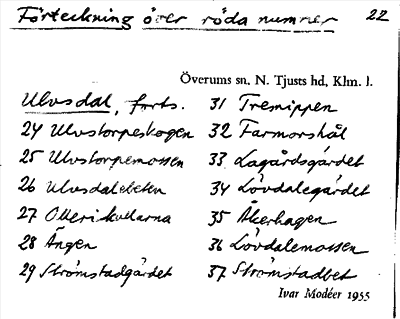 Förteckning över röda nummer 22
Överums sn. N. Tjusts hd, Klm. l.
Ulvsdal, forts.
24 Ulvstorpeskogen
25 Ulvstorpemossen
26 Ulvsdalebeten
27 Ollerikullarna
28 Ängen
29 Strömstadgärdet
31 Tremippen
32 Farmorshål
33 Lagårdsgärdet
34 Lövdalegärdet
35 Åkerhagen
36 Lövdalemossen
37 Strömstadbet
Ivar Modéer 1955